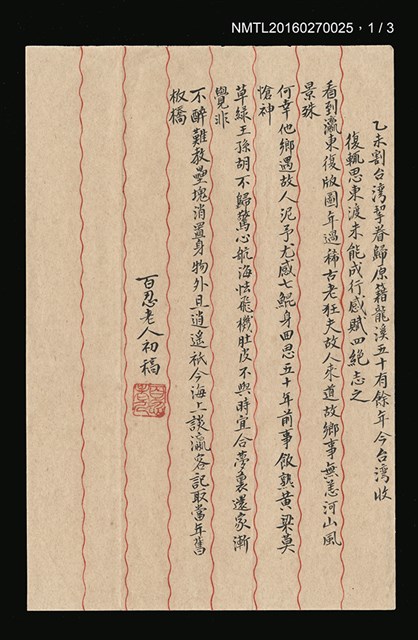 NMTL20160270025，1/3
乙未割台湾挈眷歸原籍龍溪五十有餘年今台湾收
復輒思東渡未能成行感賦四絕志之
看到瀛東復版圖年過稀古老狂夫故人來道故鄉事無恙河山風
景殊
何幸他鄉遇故人泥予尤感七鯤身回思五十年前事飯熟黄梁莫
愴神
草綠王孫胡不歸驚心航海怯飛機肚皮不與時宜合夢裏還家漸
覺非
不醉難教壘塊消置身物外且逍遙祇今海上談瀛客記取當年舊
板橋
百忍老人初稿